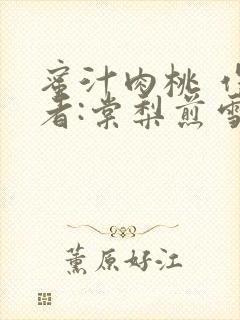 蜜汁肉桃 作
者:棠梨煎雪
薰原好江